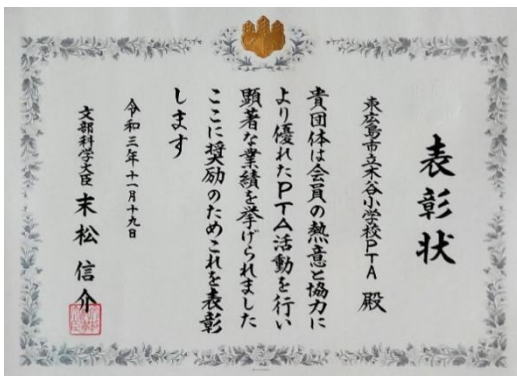 表彰状
東広島市立木谷小学校PTA 殿
貴団体は会員の熱意と協力に
より優れたPTA活動を行い
顕著な業績を挙げられました
ここに奨励のためこれを表彰
します
令和三年十一月十九日
文部科学大臣 末松信介